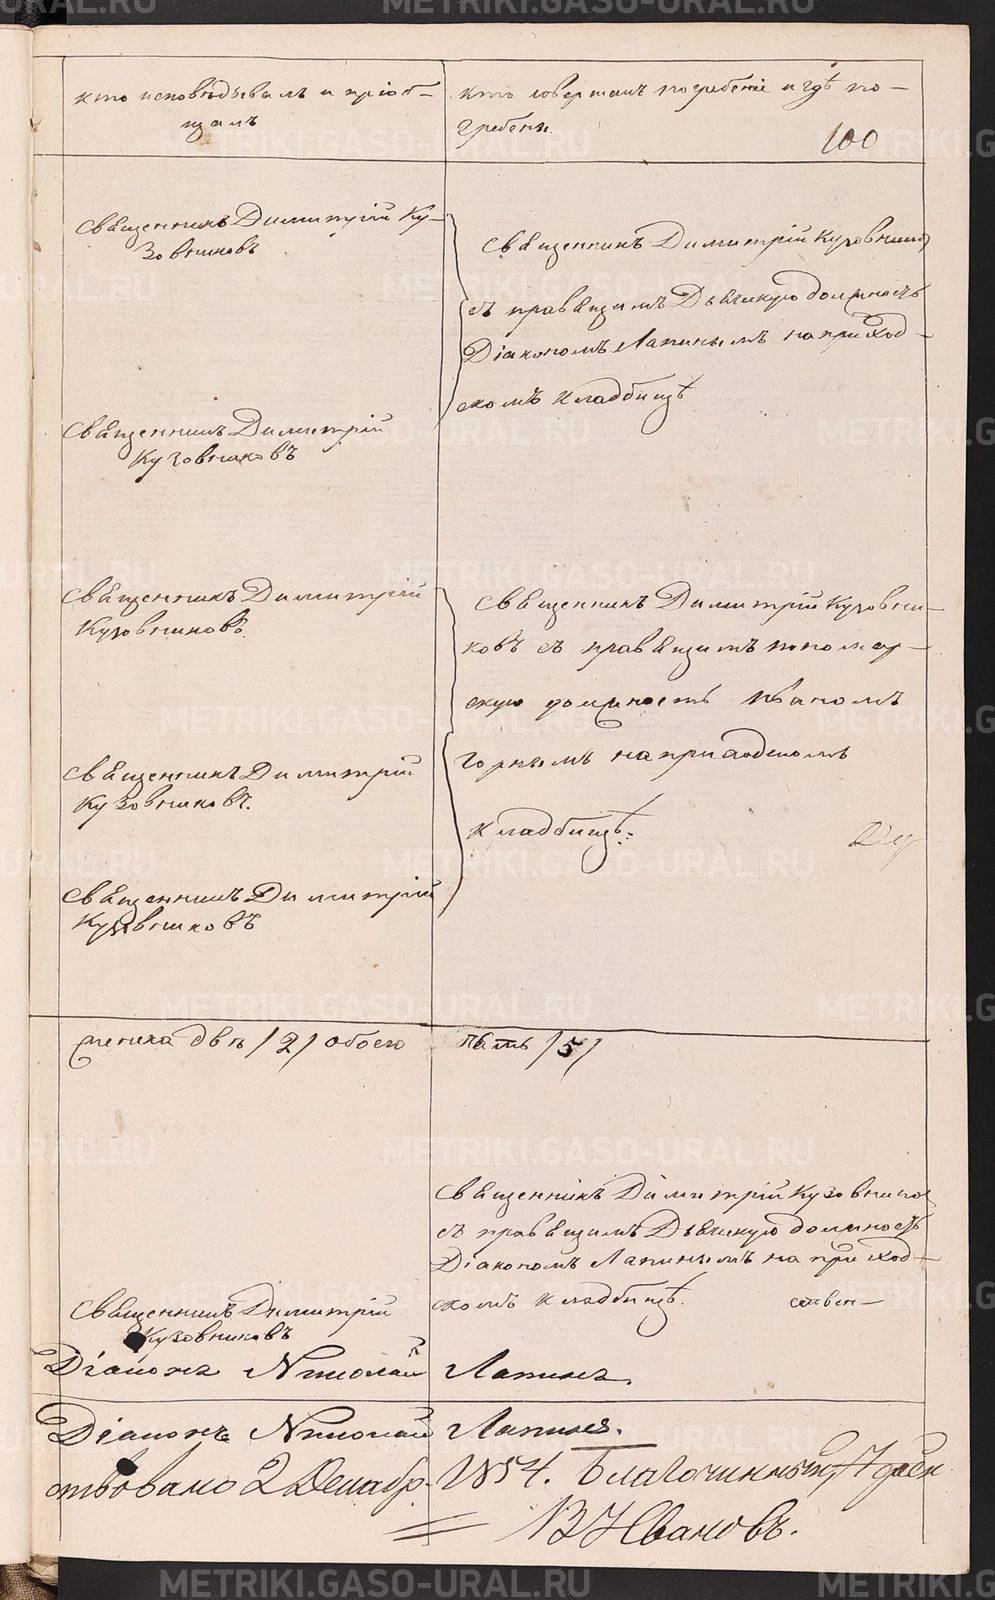 кто исповѣдывалъ и пріоб-
щалъ
кто совершалъ погребеніе и гдѣ по-
гребены.
100
Священникъ Димитрій Ку-
зовниковъ
Священникъ Димитрій Кузовниковъ
съ правящимъ Дьячкую должность
Діакономъ Лапинымъ на приход-
скомъ кладбищѣ
Священникъ Димитрій
Кузовниковъ
Священникъ Димитрій
Кузовниковъ.
Священникъ Димитрій Кузовни-
ковъ съ правящимъ пономар-
скую должность Иваномъ
Горнымъ на приходскомъ
кладбищѣ.
Священникъ Димитрій
Кузовниковъ.
Священникъ Димитрій
Кузовниковъ
женска двѣ /2/ обоего пять /5/
Священникъ Димитрій Кузовников
съ правящимъ Дьячкую должность
Діакономъ Лапинымъ на приход-
скомъ кладбищѣ.
Священникъ Димитрій
Кузовниковъ
Діаконъ Николай Лапинъ.
Діаконъ Николай Лапинъ.
ствовано 2 Декабр. 1854. Благочинный,
Ивановъ.
METRIKI.GASO-URAL.RU